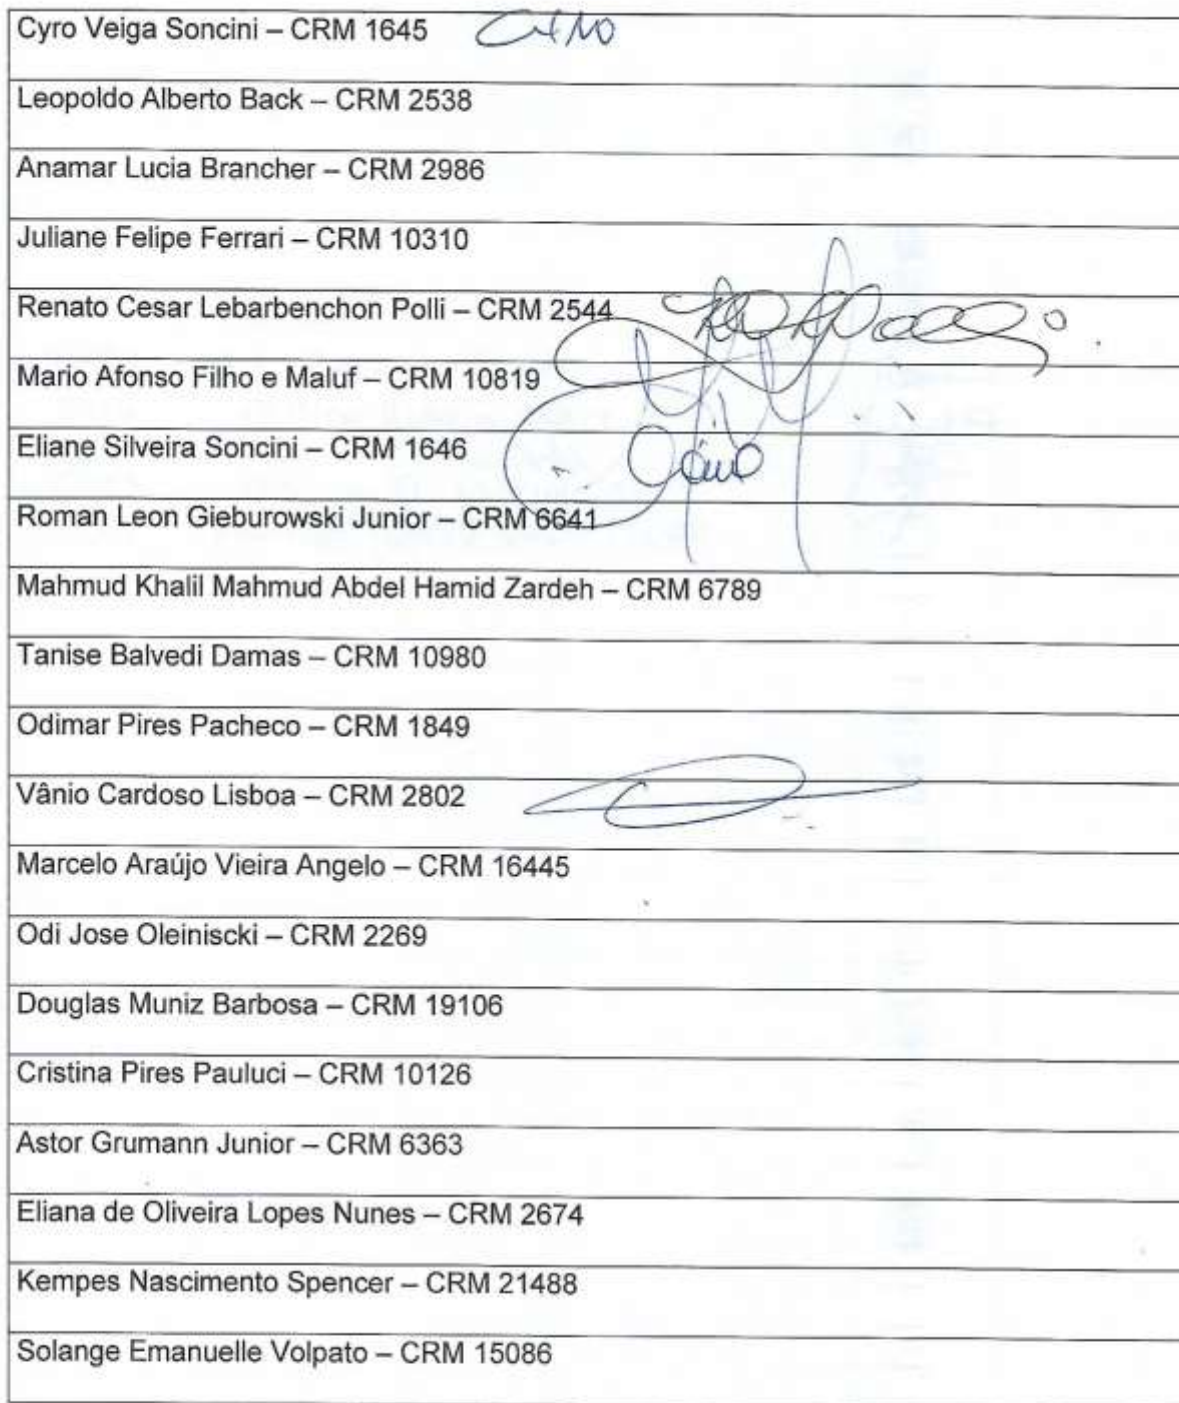 Cyro Veiga Soncini – CRM 1645
Leopoldo Alberto Back – CRM 2538
Anamar Lucia Brancher – CRM 2986
Juliane Felipe Ferrari – CRM 10310
Renato Cesar Lebarbenchon Polli – CRM 2544
Mario Afonso Filho e Maluf – CRM 10819
Eliane Silveira Soncini – CRM 1646
Roman Leon Gieburowski Junior – CRM 6641
Mahmud Khalil Mahmud Abdel Hamid Zardeh – CRM 6789
Tanise Balvedi Damas – CRM 10980
Odimar Pires Pacheco – CRM 1849
Vânio Cardoso Lisboa – CRM 2802
Marcelo Araújo Vieira Angelo – CRM 16445
Odi Jose Oleiniscki – CRM 2269
Douglas Muniz Barbosa – CRM 19106
Cristina Pires Pauluci – CRM 10126
Astor Grumann Junior – CRM 6363
Eliana de Oliveira Lopes Nunes – CRM 2674
Kempes Nascimento Spencer – CRM 21488
Solange Emanuelle Volpato – CRM 15086